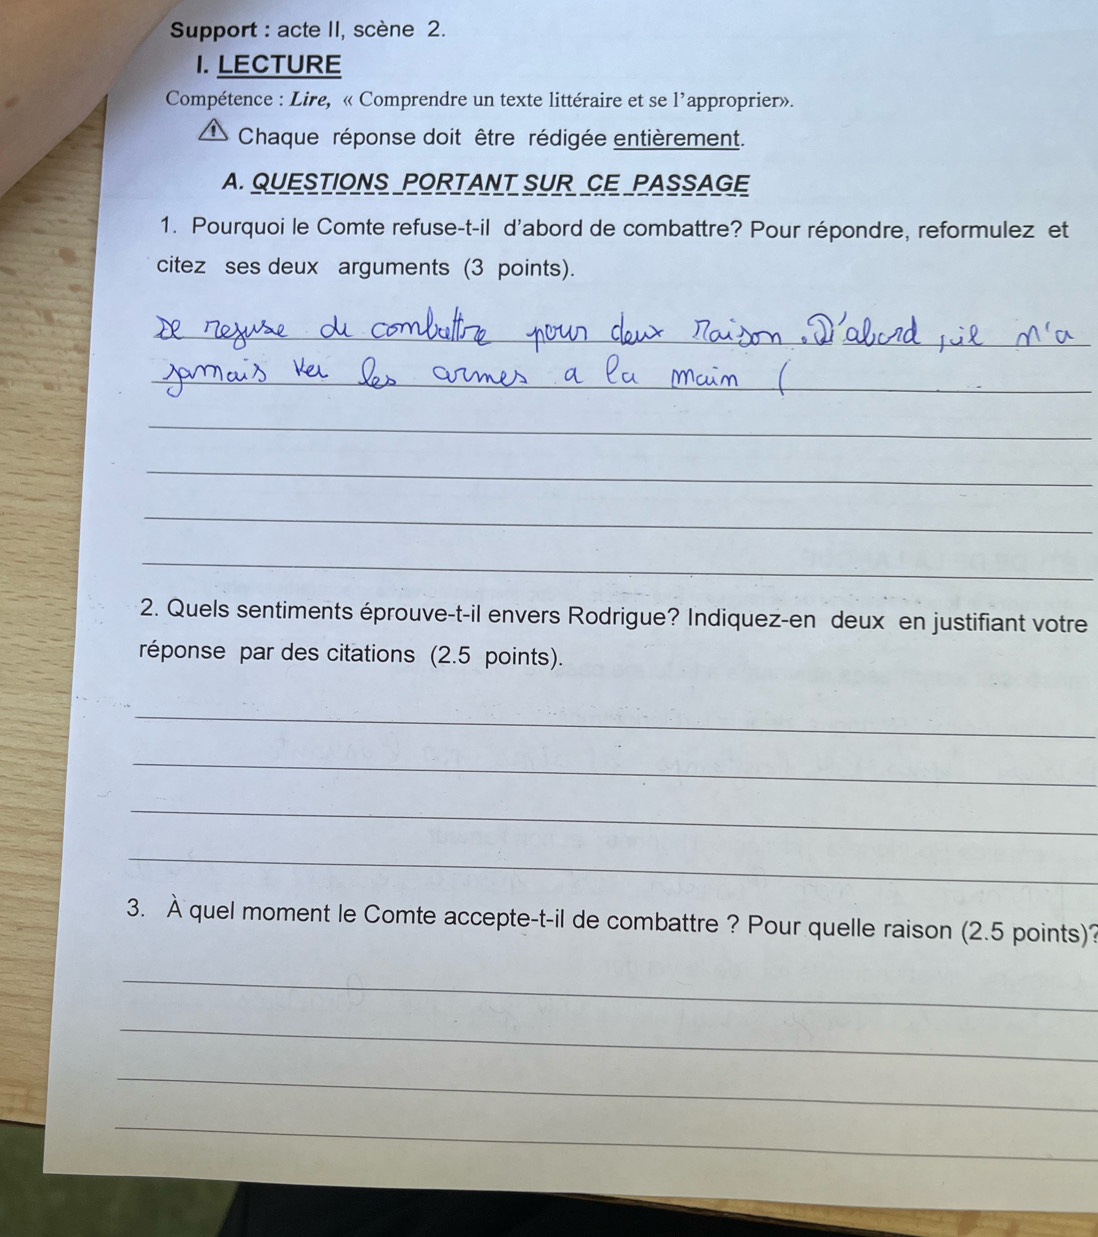 Support : acte II, scène 2.
I. LECTURE
Compétence : Lire, « Comprendre un texte littéraire et se l'approprier».
⚠ Chaque réponse doit être rédigée entièrement.
A. QUESTIONS PORTANT SUR CE PASSAGE
1. Pourquoi le Comte refuse-t-il d'abord de combattre? Pour répondre, reformulez et
citez ses deux arguments (3 points).
refuse de combattre pour deux raison. D'abord, il n'a
jamais les armes a la main (
2. Quels sentiments éprouve-t-il envers Rodrigue? Indiquez-en deux en justifiant votre
réponse par des citations (2.5 points).
3. À quel moment le Comte accepte-t-il de combattre ? Pour quelle raison (2.5 points)?